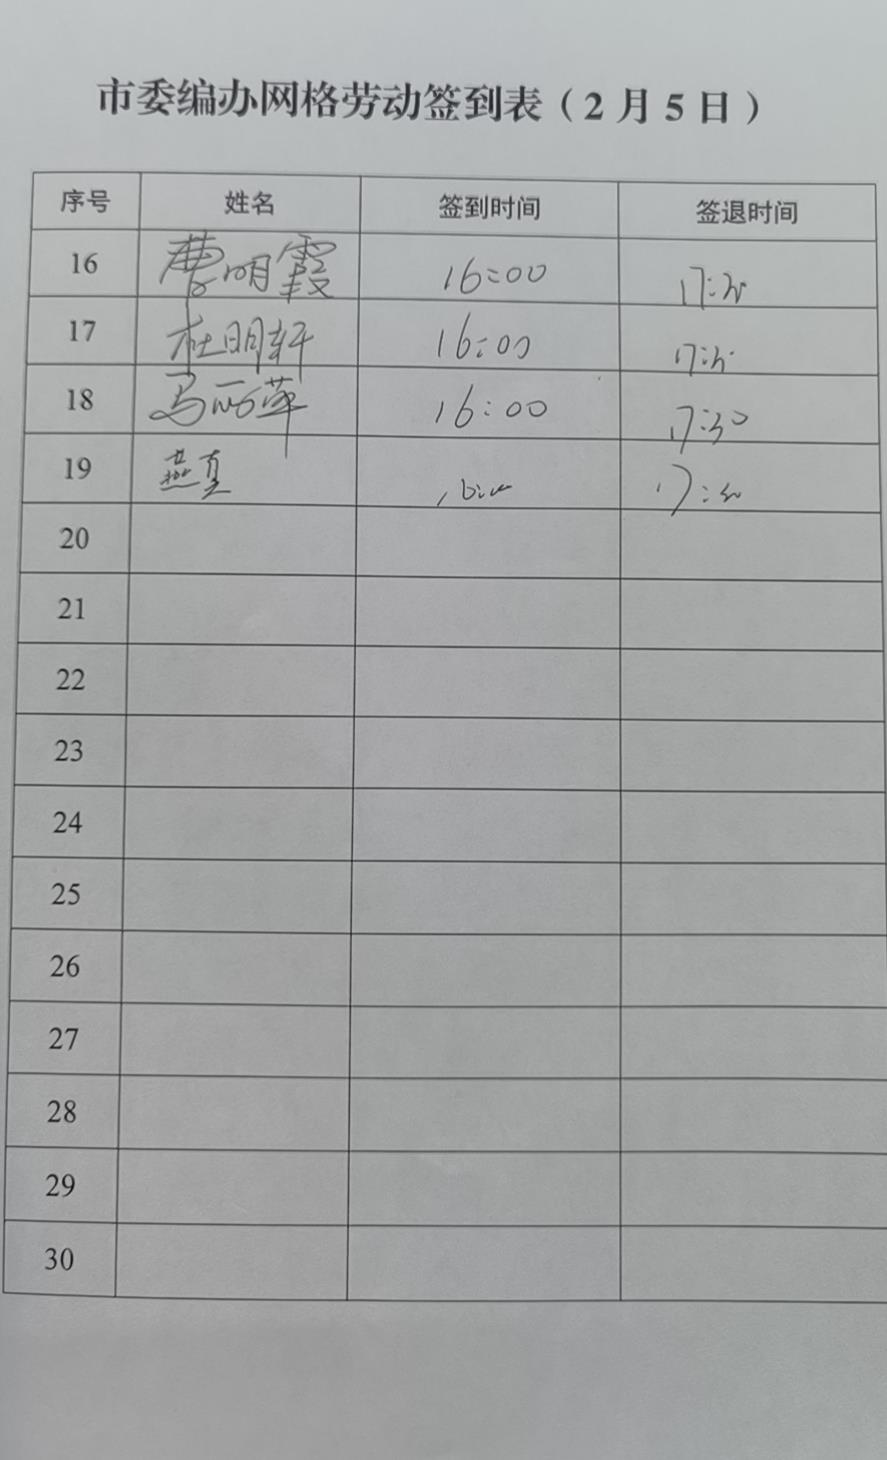 市委编办网格劳动签到表（2月5日）
序号 姓名 签到时间 签退时间
16 曹明霞 16:00 17:30
17 杜明轩 16:00 17:30
18 马丽萍 16:00 17:30
19 燕真 16:00 17:30
20
21
22
23
24
25
26
27
28
29
30